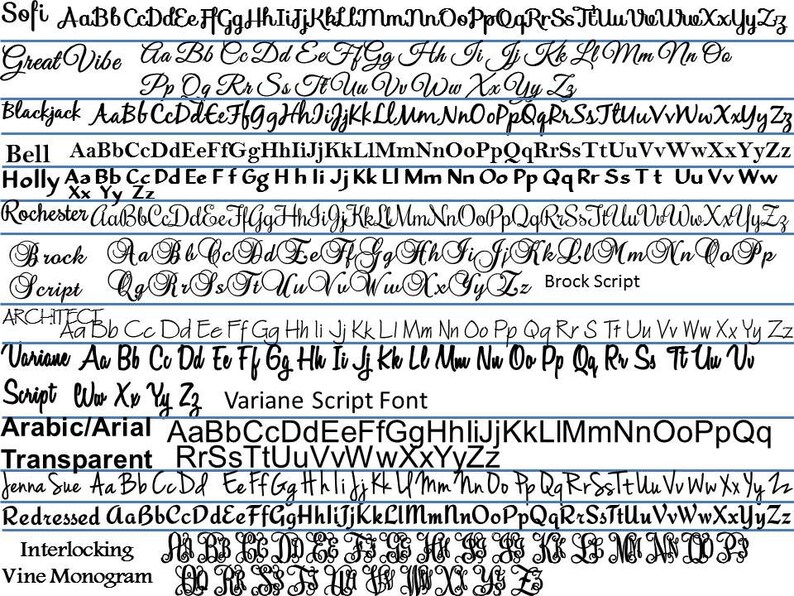 Sofi AaBbCcDdEeFfGgHhIiJjKkLlMmNnOoPpQqRrSsTtUuVvWwXxYyZz
Great Vibe Aa Bb Cc Dd EeFfGg Hh Ii Jj Kk Ll Mm Nn Oo
Pp Qq Rr Ss Tt Uu Vv Ww Xx Yy Zz
Blackjack AaBbCcDdEeFfGgHhIiJjKkLlMmNnOoPpQqRrSsTtUuVvWwXxYyZz
Bell AaBbCcDdEeFfGgHhIiJjKkLlMmNnOoPpQqRrSsTtUuVvWwXxYyZz
Holly Aa Bb Cc Dd Ee F f Gg H h Ii Jj Kk Ll Mm Nn Oo Pp Qq Rr Ss T t Uu Vv Ww
Xx Yy Zz
Rochester AaBbCcDdEeFfGgHhIiJjKkLlMmNnOoPpQqRrSsTtUuVvWwXxYyZz
Brock AaBbCcDdEeFfGgHhIiJjKkLlMmNnOoPp
Script QqRrSsTtUuVvWwXxYyZz Brock Script
ARCHITECT Aa Bb Cc Dd Ee Ff Gg Hh Ii Jj Kk Ll Mm Nn Oo Pp Qq Rr S Tt Uu Vv Ww Xx Yy Zz
Variane Aa Bb Cc Dd Ee Ff Gg Hh Ii Jj Kk Ll Mm Nn Oo Pp Qq Rr Ss Tt Uu Vv
Script Ww Xx Yy Zz Variane Script Font
Arabic/Arial AaBbCcDdEeFfGgHhIiJjKkLlMmNnOoPpQq
Transparent RrSsTtUuVvWwXxYyZz
Jenna Sue Aa Bb Cc Dd Ee Ff Gg Hh Ii Jj Kk Ll Mm Nn Oo Pp Qq Rr Ss Tt Uu Vv Ww Xx Yy Zz
Redressed AaBbCcDdEeFfGgHhIiJjKkLlMmNnOoPpQqRrSsTtUuVvWwXxYyZz
Interlocking AA BB CC DD EE FF GG HH II JJ KK LL MM NN OO PP
Vine Monogram QQ RR SS TT UU VV WW XX YY ZZ